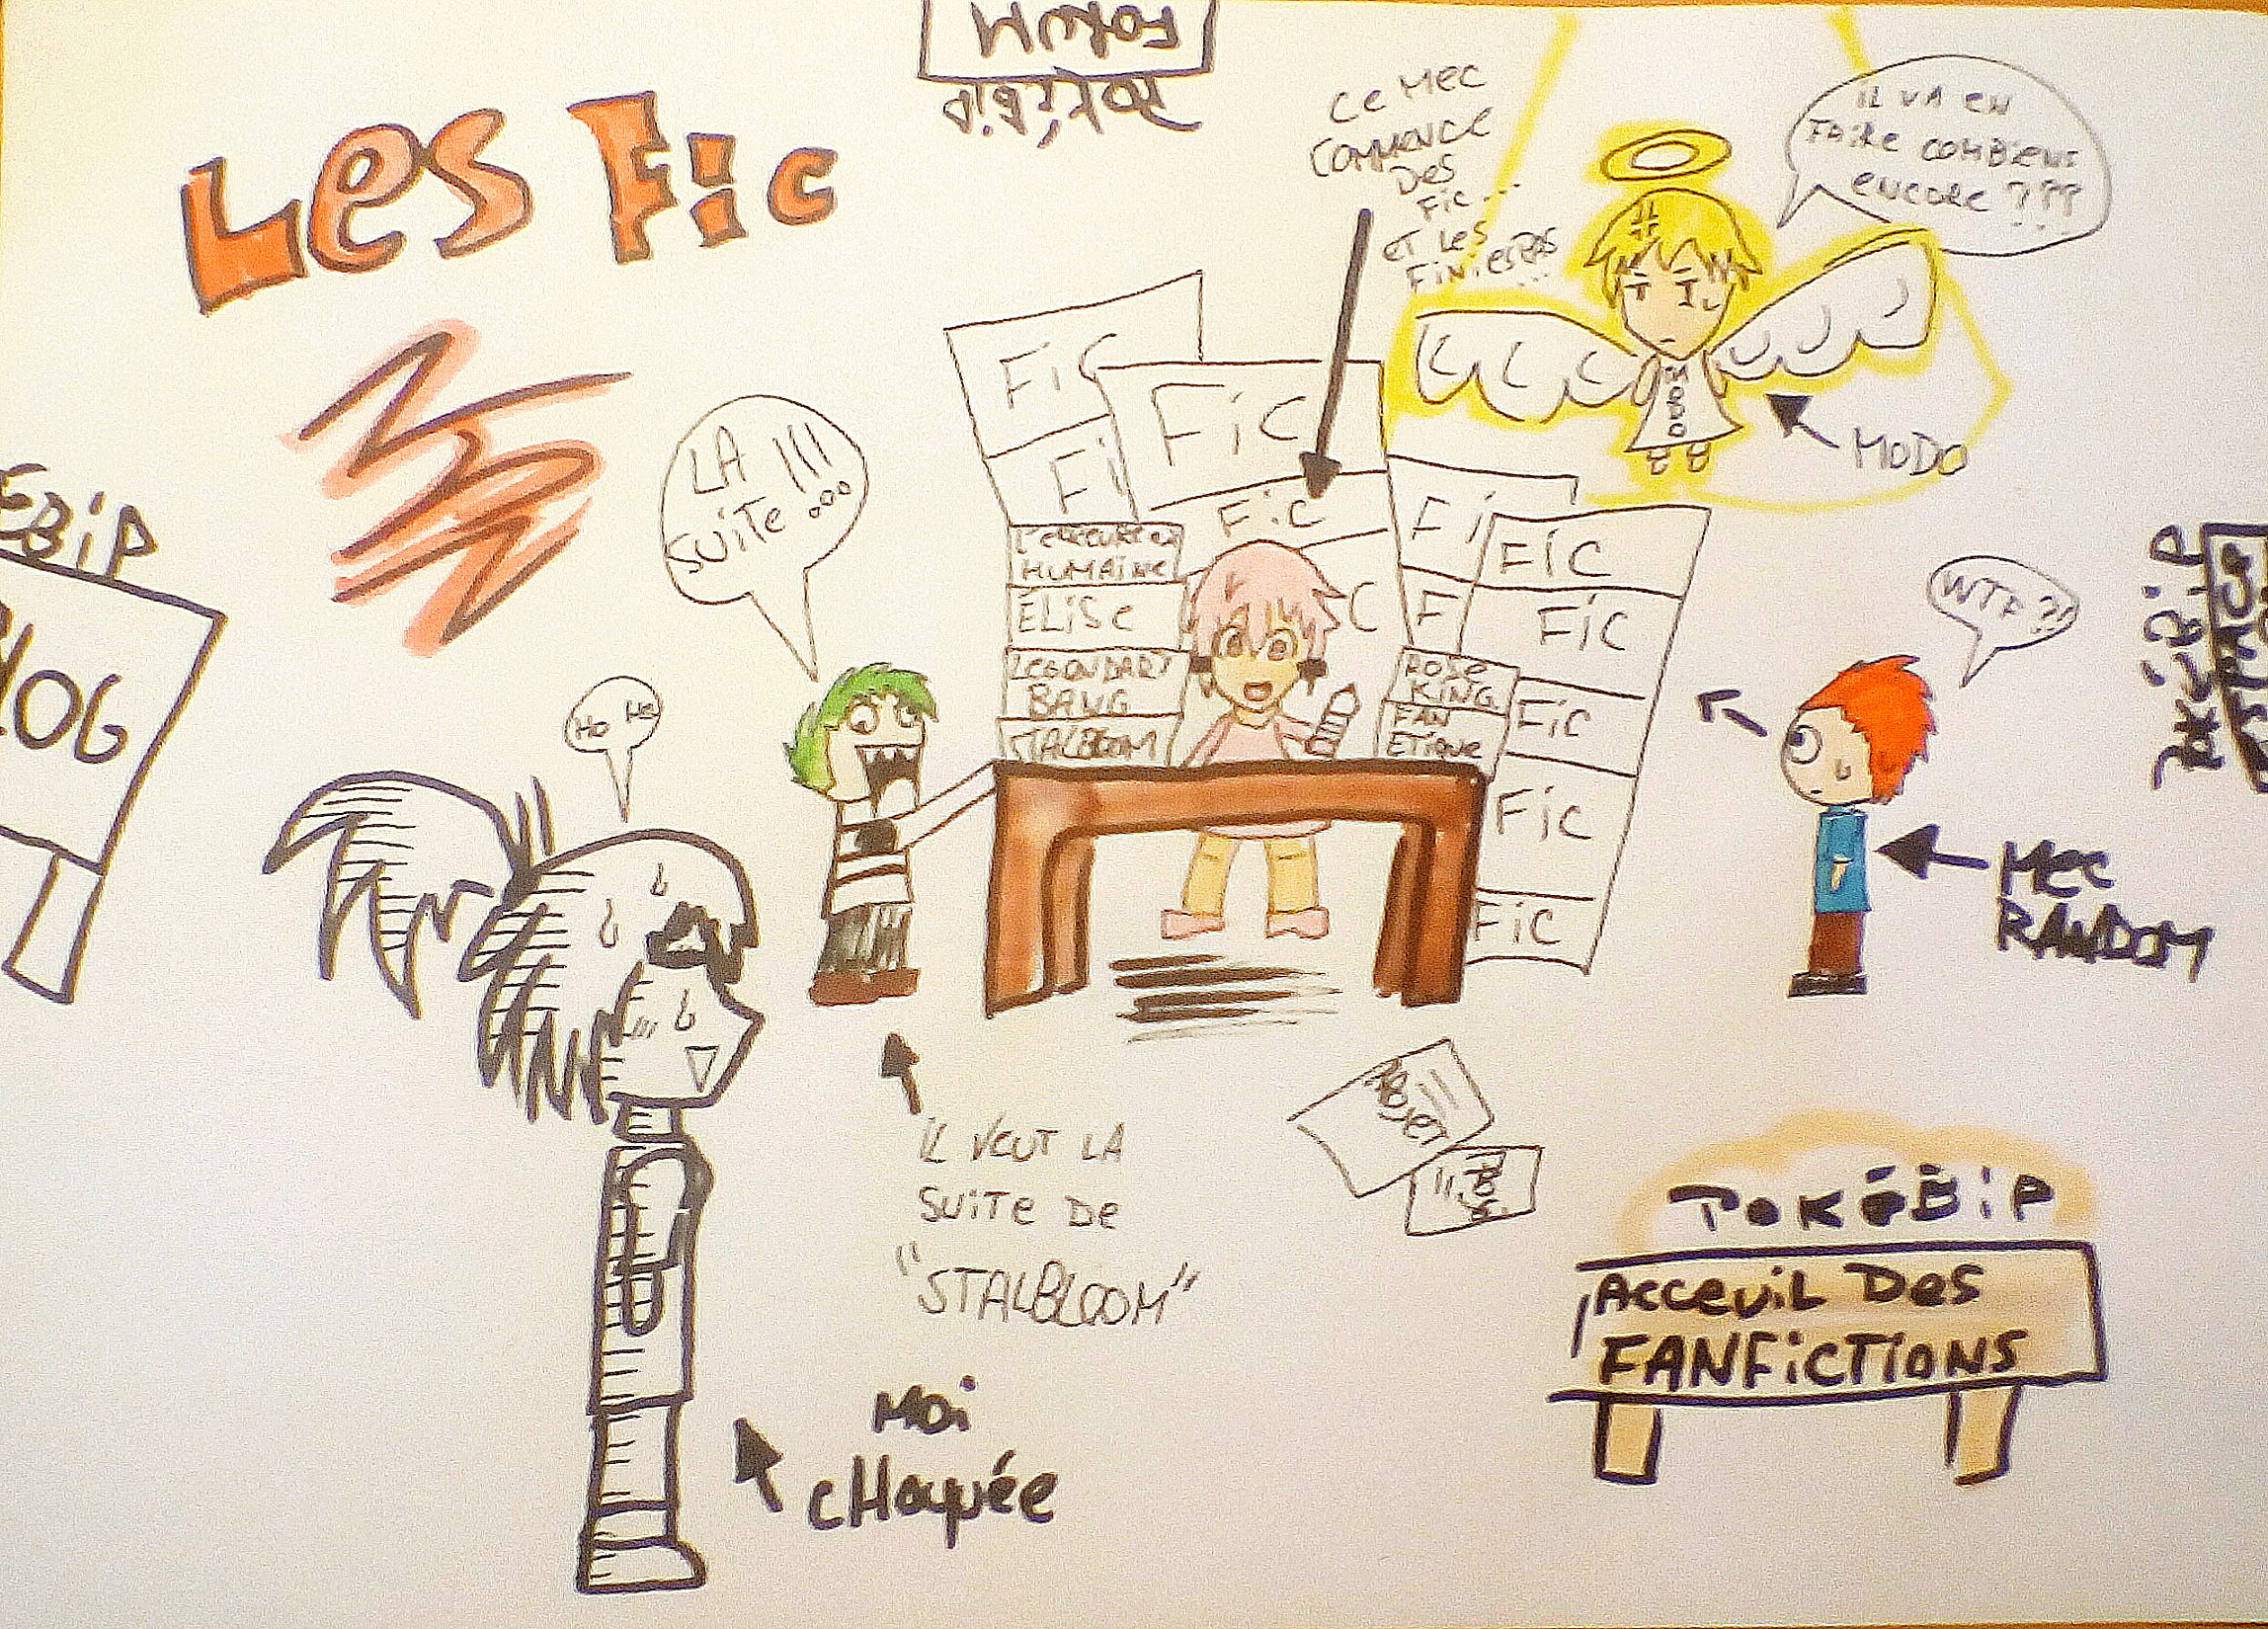 Les Fic
FORUM
POKÉBIP
Ce MeC
COMMENCE
Des
Fic...
ET Les
FiNiesPAS
IL VA eN
FAiRe COMBieNS
eNCORe ???
MODO
MODO
LA !!!
SUiTe...
Fic
Fi
Fic
Fic
C
HUMAiNe
ÉLiSe
LEGENDARY
BANG
STALBLOOM
Fi
F
FiC
FiC
FiC
FiC
FiC
ROSe
KING
FAN
ETiQUe
EBiP
LOG
Ho He
WTF ?!
POKÉBIP
MeC
RANDOM
iL VeUT LA
SUiTe De
"STALBLOOM"
PROJET
MOi
cHoquée
POKÉBiP
ACCeuiL Des
FANFiCTiONS